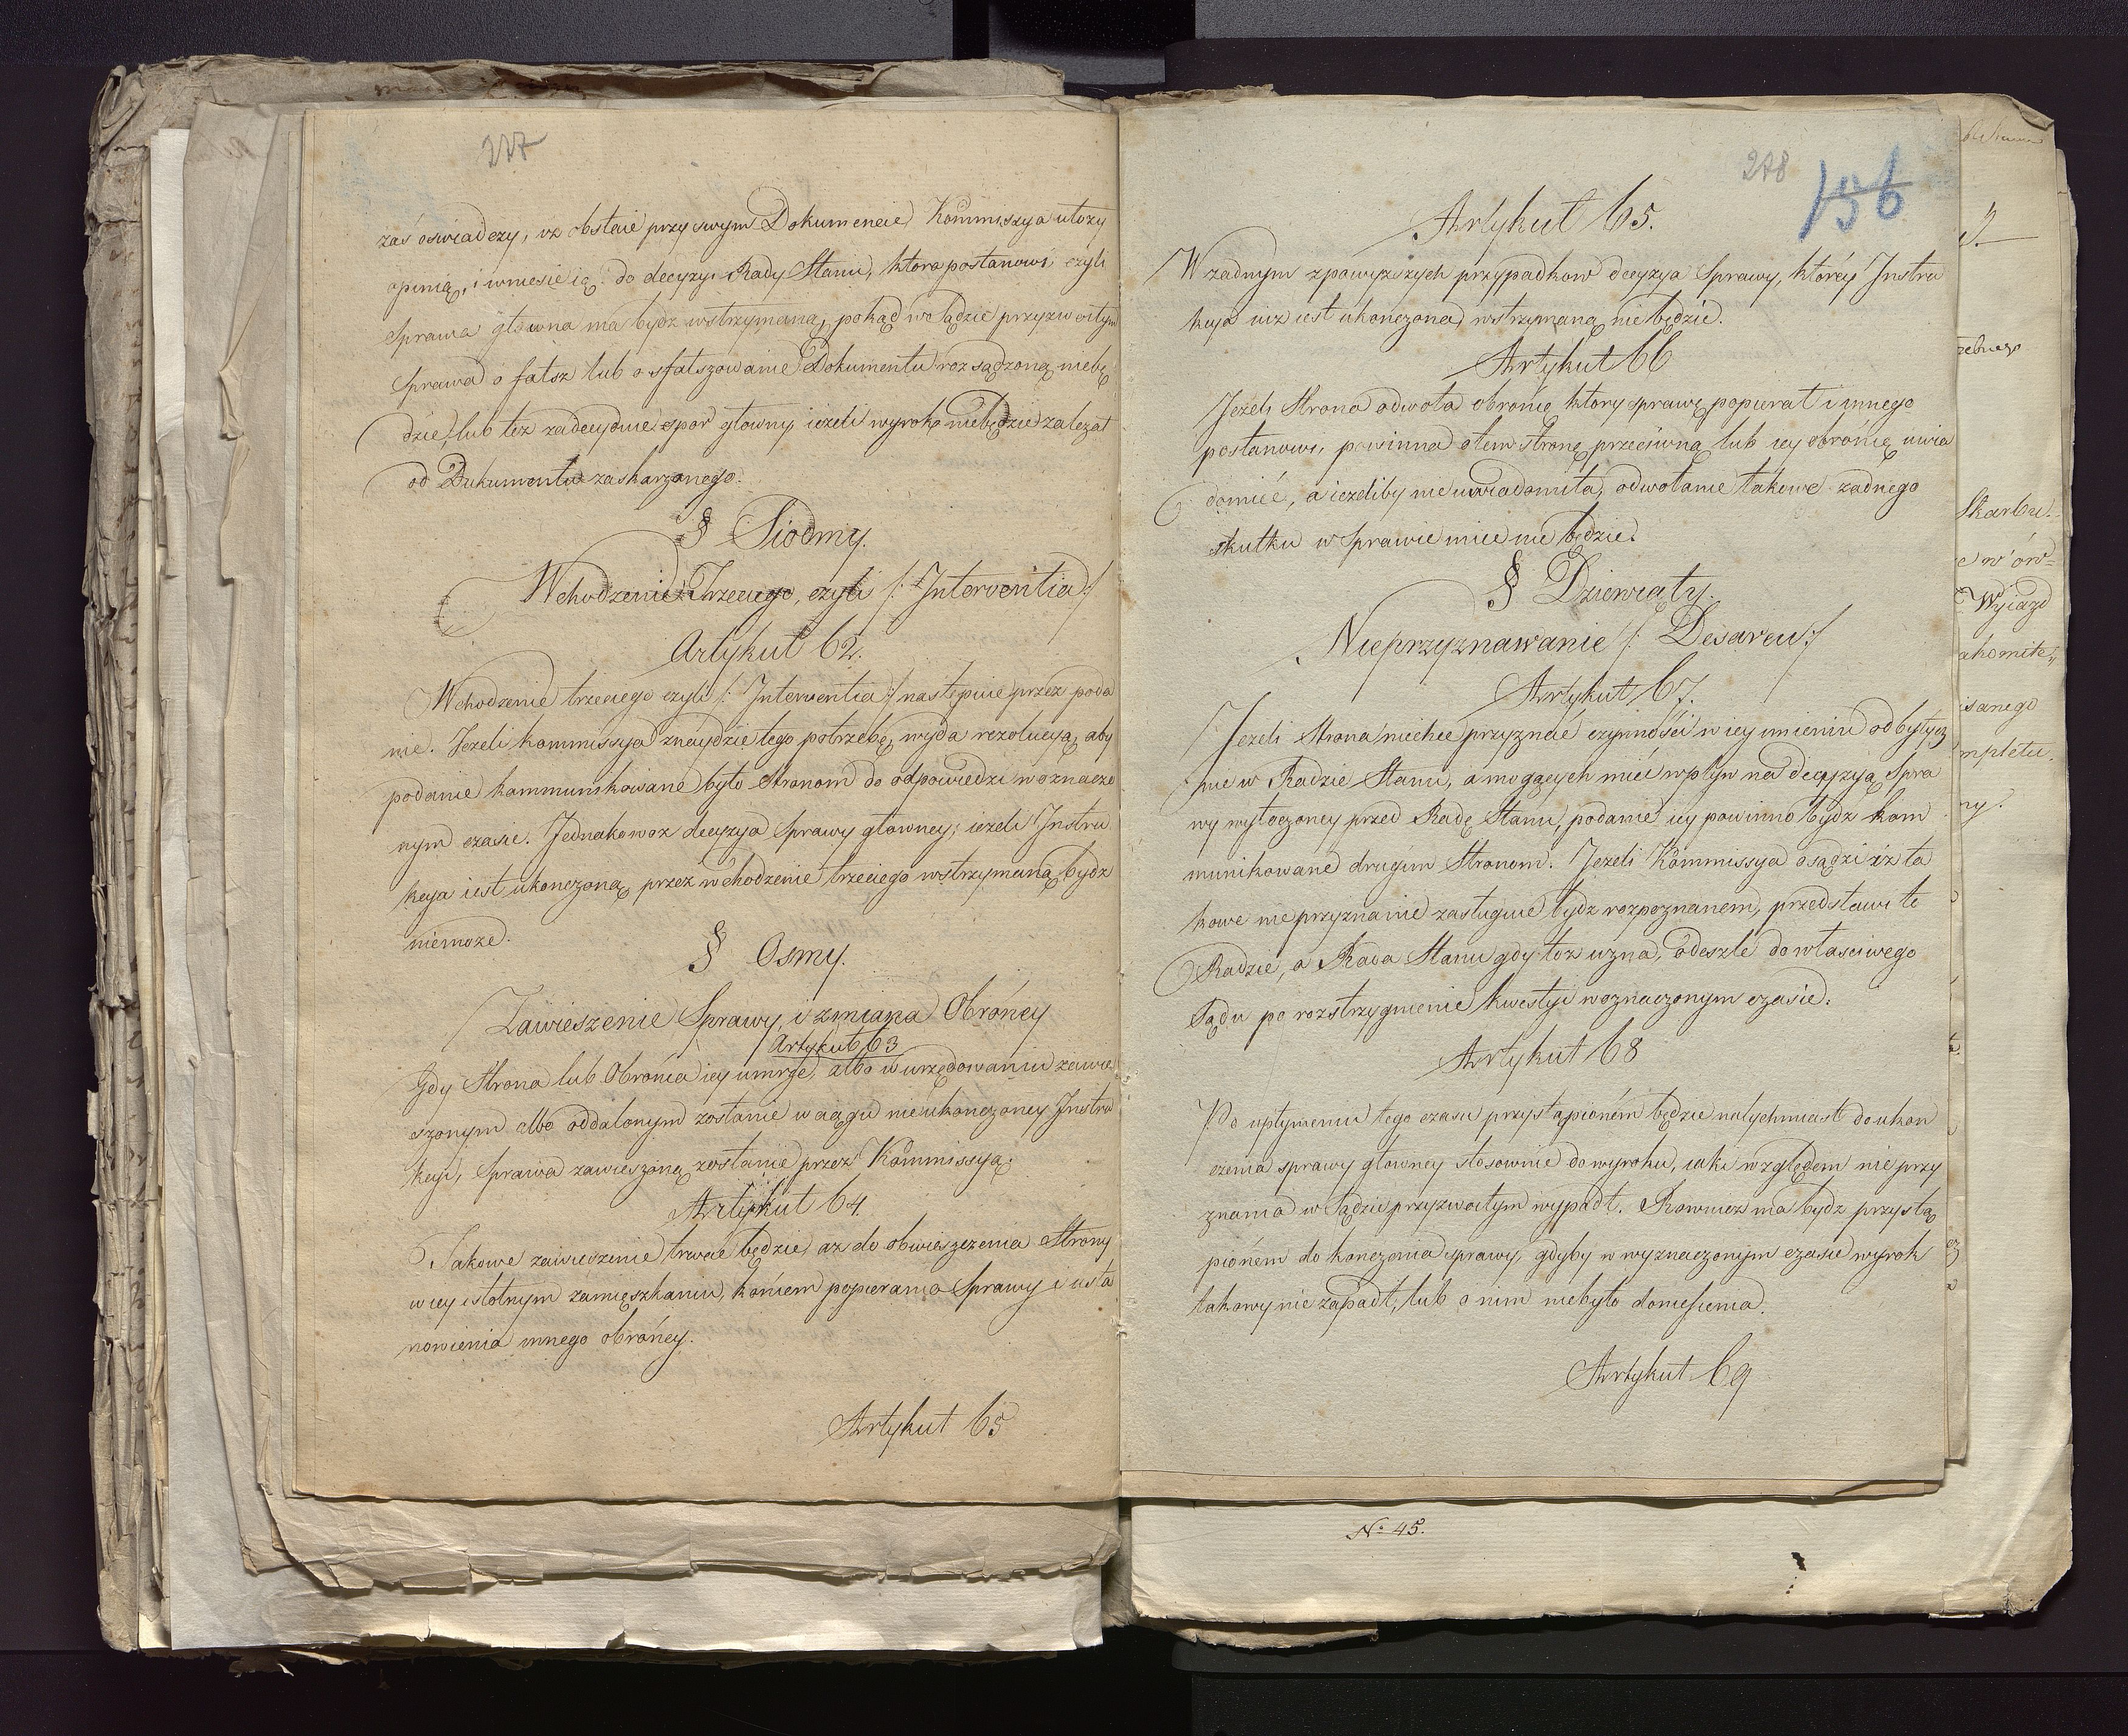 277
zaś oswiadczy, iż obstaie przy swym Dokumencie, Kommissya ułoży
opinią, i wniesie ią do decyzyi Rady Stanu, ktora postanowi czyli
Sprawa głowna ma bydz wstrzymaną, pokąd w Sądzie przyzwoitym
Sprawa o fałsz lub o sfałszowanie Dokumentu rozsądzoną niebę
dzie, lub tez zadecyduie spor głowny iezeli wyrok niebędzie zalezał
od Dukumentu zaskarzonego.
§ Siodmy.
Wchodzenie Trzeciego, czyli /: Interventia :/
Artykuł 62.
Wchodzenie trzeciego czyli /: Interventia :/ następuie przez poda
nie. Jezeli kommissya znaydzie tego potrzebę, wyda rezolucyą, aby
podanie kommunikowane było Stronom do odpowiedzi w oznaczo
nym czasie. Jednakowoz decyzya Sprawy głowney, iezeli Instru
kcya iest ukonczoną, przez wchodzenie trzeciego wstrzymaną bydz
niemoze.
§ Osmy.
Zawieszenie Sprawy, i zmiana Obrońcy
Artykuł 63
Gdy Strona lub Obrońca iey umrze, albo w urzędowaniu zawie
szonym albo oddalonym zostanie w ciągu nieukonczoney Instru
kcyi, Sprawa zawieszoną zostanie przez Kommissyą.
Artykuł 64.
Takowe zawieszenie trwać będzie, az do obwieszczenia Strony
w iey istotnym zamięszkaniu, końcem popierania Sprawy i usta
nowienia innego obrońcy.
Artykuł 65
278
156
Artykuł 65.
W zadnym z powyzszych przypadkow decyzya Sprawy, ktorey Instru
kcya iuz iest ukonczona, wstrzymaną nie będzie.
Artykuł 66
Jezeli Strona odwoła obrońcę ktory sprawę popierał i innego
postanowi, powinna o tem stronę przeciwną lub iey obrońcę uwia
domić, a iezeliby nie uwiadomiła, odwołanie takowe zadnego
skutku w Sprawie mieć nie będzie.
§ Dziewiąty.
Nieprzyznawanie /: Desaveu :/
Artykuł 67.
Jezeli Strona niechce przyznać czynności w iey imieniu odbytych
nie w Radzie Stanu, a mogących mieć wpływ na decyzyą Spra
wy wytoczoney przed Radę Stanu, podanie iey powinno bydz kom
munikowane drugim Stronom. Jezeli Kommissya osądzi iz ta
kowe nieprzyznanie zasługuie bydz rozpoznanem, przedstawi to
Radzie, a Rada Stanu gdy toz uzna, odeszle do własciwego
Sądu po rozstrzygnienie kwestyi w oznaczonym czasie.
Artykuł 68
Po upłynieniu tego czasu przystąpionem będzie natychmiast do ukon
czenia sprawy głowney stosownie do wyroku, iaki względem nieprzy
znania w Sądzie przyzwoitym wypadł. Rownież ma bydz przystą
pionem do konczenia sprawy, gdyby w wyznaczonym czasie wyrok
takowy nie zapadł, lub o nim niebyło doniesienia.
Artykuł 69
Skarbu.
Wyiazd
isanego
mpletu.
ny.
No 45.